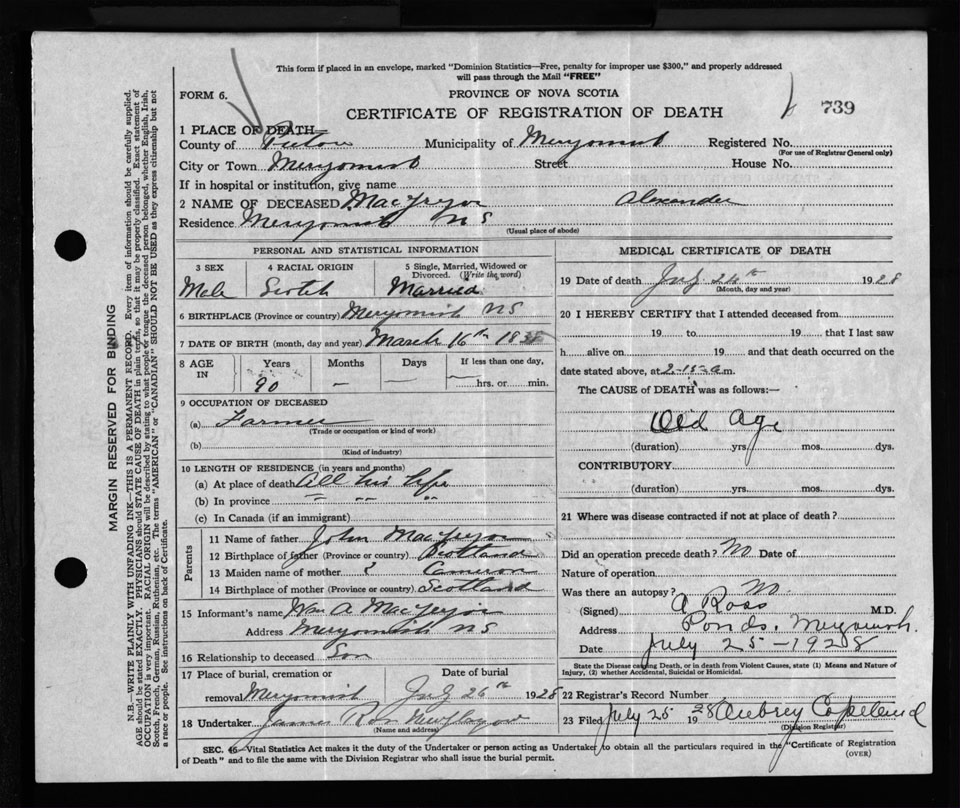 This form if placed in an envelope, marked "Dominion Statistics—Free, penalty for improper use $300," and properly addressed
will pass through the Mail "FREE"
FORM 6.
PROVINCE OF NOVA SCOTIA
CERTIFICATE OF REGISTRATION OF DEATH
739
1 PLACE OF DEATH
County of Pictou Municipality of Merigomish Registered No.
(For use of Registrar General only)
City or Town Merigomish Street House No.
If in hospital or institution, give name
2 NAME OF DECEASED MacGregor Alexander
Residence Merigomish N S
(Usual place of abode)
PERSONAL AND STATISTICAL INFORMATION
3 SEX 4 RACIAL ORIGIN 5 Single, Married, Widowed or Divorced. (Write the word)
Male Scotch Married
6 BIRTHPLACE (Province or country) Merigomish N S
7 DATE OF BIRTH (month, day and year) March 16th
8 AGE IN Years Months Days If less than one day,
90 — — hrs. or min.
9 OCCUPATION OF DECEASED
(a) Farmer
(Trade or occupation or kind of work)
(b)
(Kind of industry)
10 LENGTH OF RESIDENCE (in years and months)
(a) At place of death All his life
(b) In province " " "
(c) In Canada (if an immigrant)
Parents
11 Name of father John MacGregor
12 Birthplace of father (Province or country) Scotland
13 Maiden name of mother ? Cameron
14 Birthplace of mother (Province or country) Scotland
15 Informant's name Wm A. MacGregor
Address Merigomish N S
16 Relationship to deceased Son
17 Place of burial, cremation or removal Date of burial
Merigomish July 26th 1928
18 Undertaker James Ross New Glasgow
(Name and address)
MEDICAL CERTIFICATE OF DEATH
19 Date of death July 24th 1928
(Month, day and year)
20 I HEREBY CERTIFY that I attended deceased from
19 to 19 that I last saw
h alive on 19 and that death occurred on the
date stated above, at 2-15 a m.
The CAUSE OF DEATH was as follows:—
Old Age
(duration) yrs. mos. dys.
CONTRIBUTORY
(duration) yrs. mos. dys.
21 Where was disease contracted if not at place of death?
Did an operation precede death? No Date of
Nature of operation
Was there an autopsy? No.
(Signed) A Ross M.D.
Address Ponds, Merigomish.
Date July 25-1928
State the Disease causing Death, or in death from Violent Causes, state (1) Means and Nature of
Injury, (2) whether Accidental, Suicidal or Homicidal.
22 Registrar's Record Number
23 Filed July 25 1928 Aubrey Copeland
(Division Registrar)
SEC. 46—Vital Statistics Act makes it the duty of the Undertaker or person acting as Undertaker to obtain all the particulars required in the "Certificate of Registration
of Death" and to file the same with the Division Registrar who shall issue the burial permit.
(OVER)
MARGIN RESERVED FOR BINDING
N.B.—WRITE PLAINLY WITH UNFADING INK—THIS IS A PERMANENT RECORD. Every item of information should be carefully supplied.
AGE should be stated EXACTLY. PHYSICIANS should STATE CAUSE OF DEATH in plain terms, so that it may be properly classified. Exact statement of
OCCUPATION is very important. RACIAL ORIGIN will be described by stating to what people or tongue the deceased person belonged, whether English, Irish,
Scotch, French, German, Russian, Ruthenian, etc. The terms "AMERICAN" or "CANADIAN" SHOULD NOT BE USED as they express citizenship but not
a race or people. See instructions on back of Certificate.